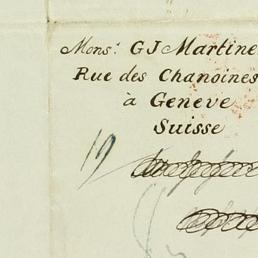 Mons: GJ Martine
Rue des Chanoines
à Geneve
Suisse
19